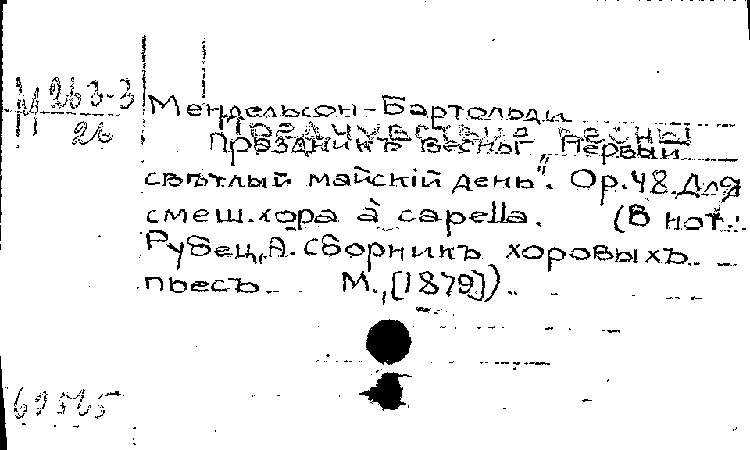 М 263-3
26
Мендельсон-Бартольди
Предчувствие весны
Праздникъ весны „Первый
свѣтлый майскій день". Op.48. Для
смеш.хора à capella. (В нот.:
Рубец,А. Сборникъ хоровыхъ
пьесъ. М.,[1879]).
69565